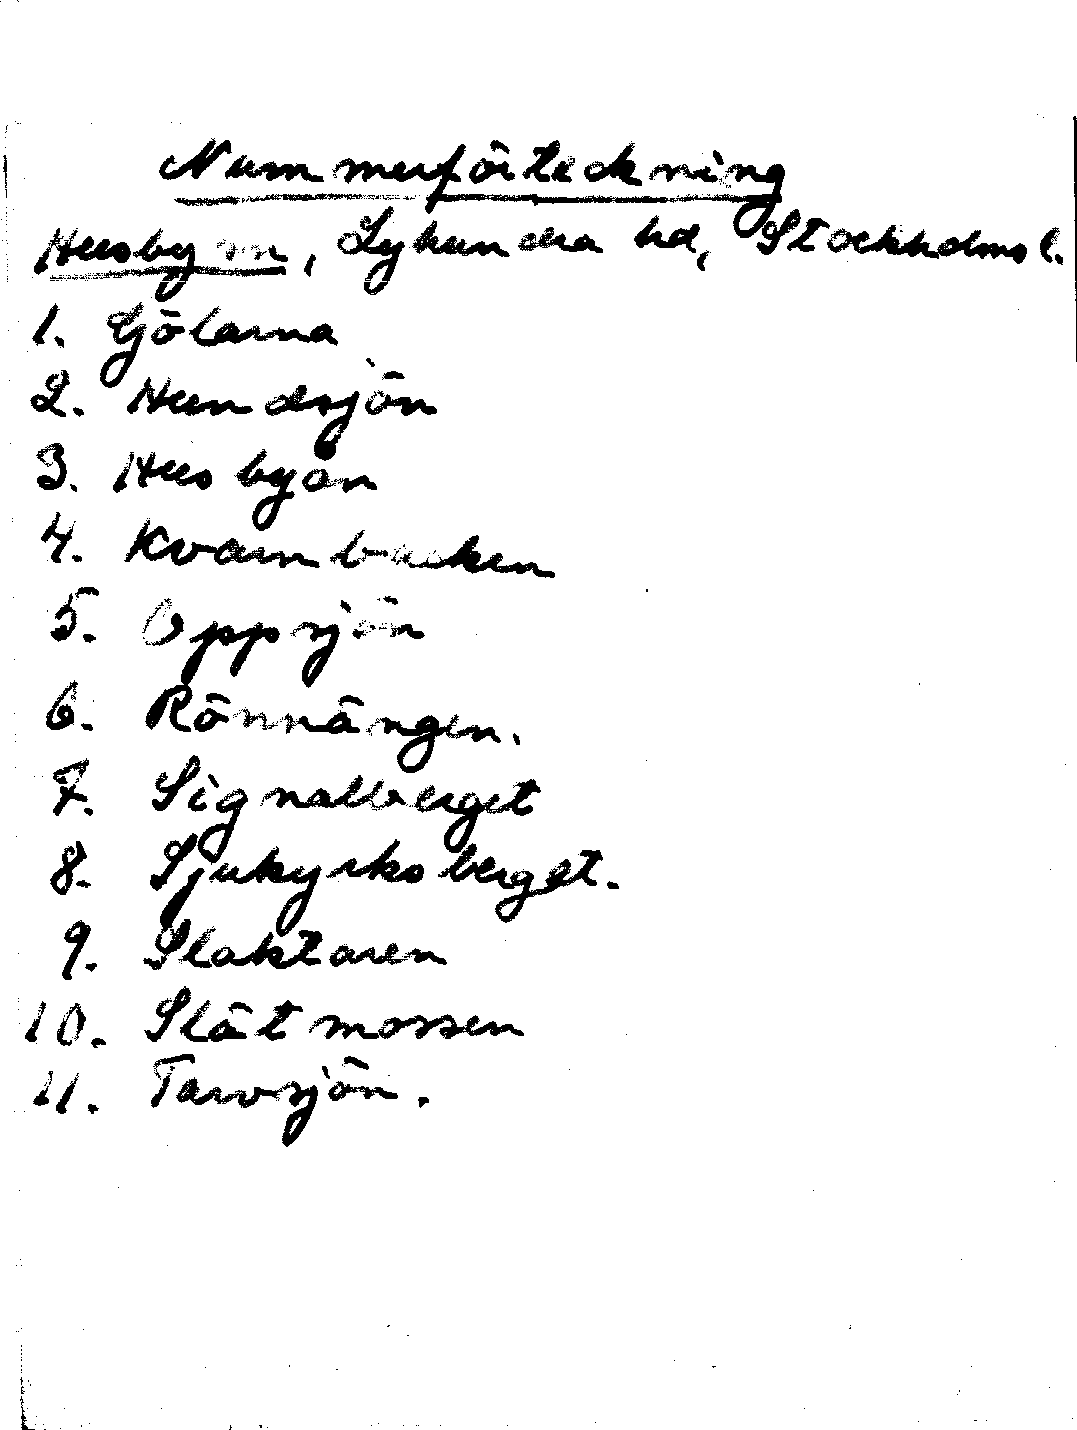 Nummerförteckning
Husby sn, Lyhundra hd, Stockholms l.
1. Gölarna
2. Hundsjön
3. Husbyån
4. Kvarnbacken
5. Oppsjön
6. Rönnängen.
7. Signalberget
8. Sjukyrkoberget.
9. Slaktaren
10. Slätmossen
11. Tarvsjön.